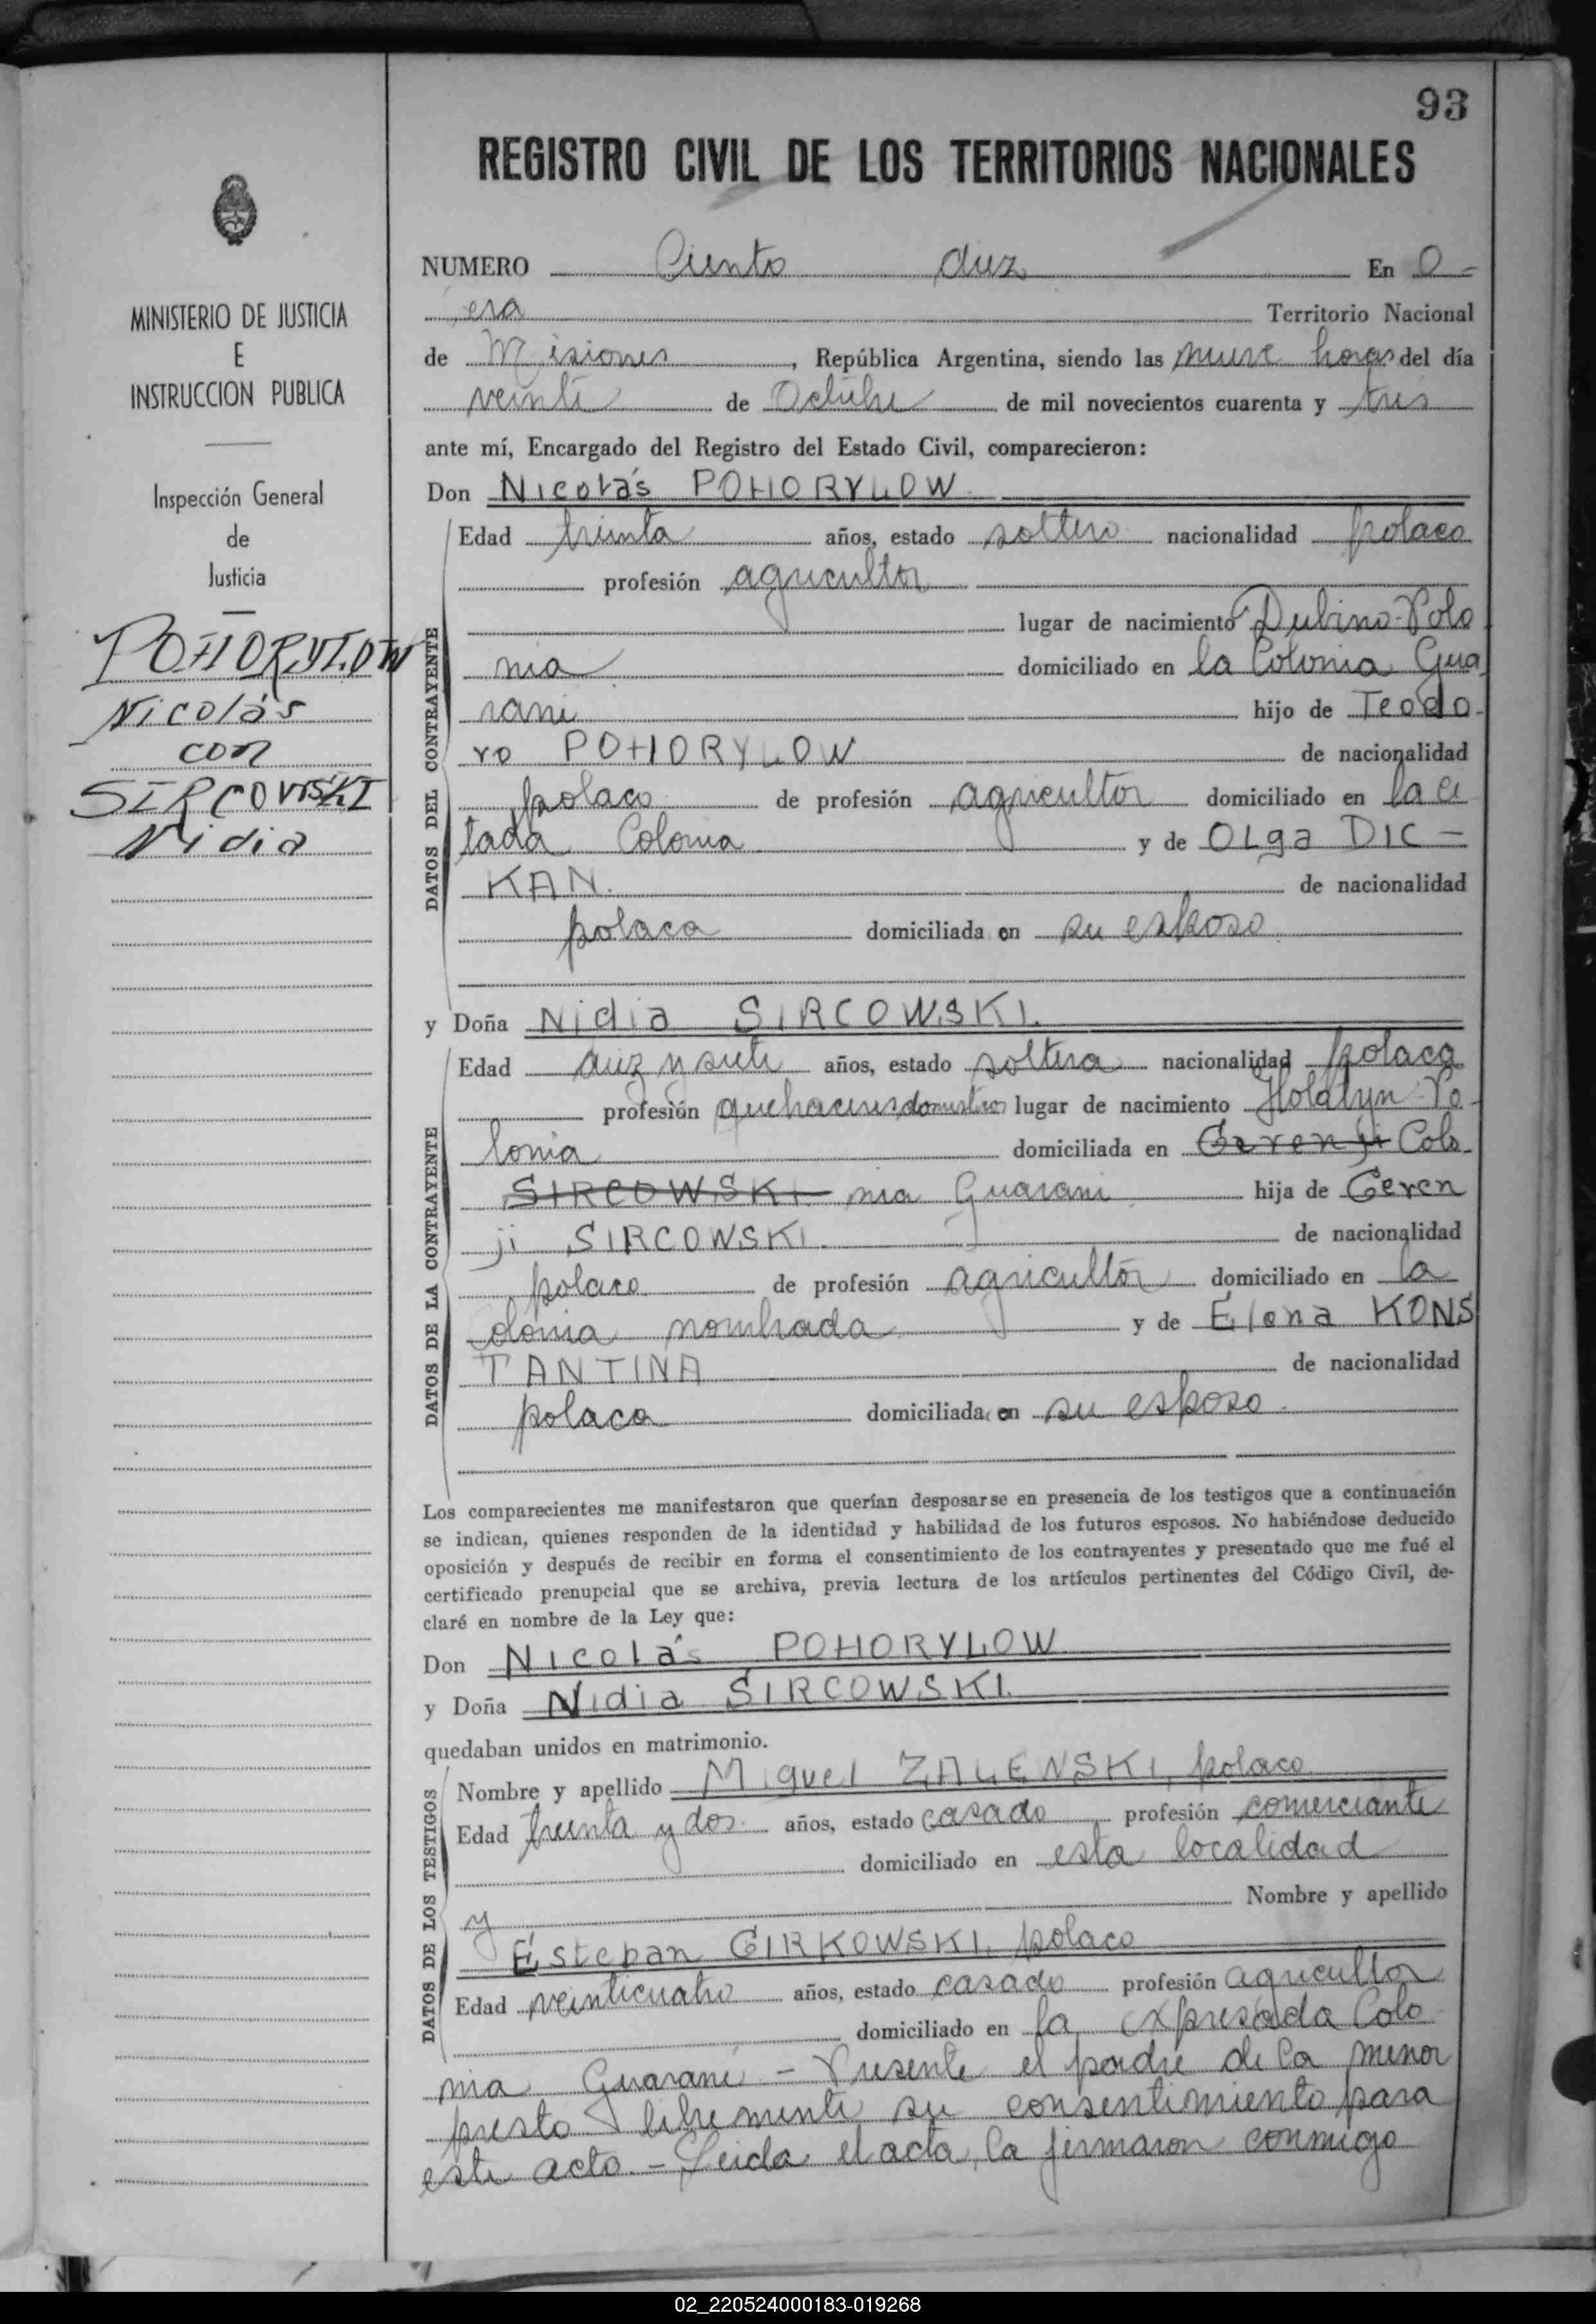 93
REGISTRO CIVIL DE LOS TERRITORIOS NACIONALES
MINISTERIO DE JUSTICIA
E
INSTRUCCION PUBLICA
Inspección General
de
Justicia
POHORYLOW
Nicolás
con
SIRCOWSKI
Nidia
NUMERO Ciento diez En O-
era Territorio Nacional
de Misiones, República Argentina, siendo las nueve horas del día
veinte de Octubre de mil novecientos cuarenta y tres
ante mí, Encargado del Registro del Estado Civil, comparecieron:
Don Nicolás POHORYLOW
DATOS DEL CONTRAYENTE
Edad treinta años, estado soltero nacionalidad polaco
profesión agricultor
lugar de nacimiento Dubino-Polo
nia domiciliado en la Colonia Gua
rani hijo de Teodo-
ro POHORYLOW de nacionalidad
polaco de profesión agricultor domiciliado en la ci
tada Colonia y de OLga DIC-
KAN. de nacionalidad
polaca domiciliada en su esposo
y Doña Nidia SIRCOWSKI.
DATOS DE LA CONTRAYENTE
Edad diez y siete años, estado soltera nacionalidad polaca
profesión quehaceres domesticos lugar de nacimiento Holatyn-Po-
lonia domiciliada en Gerenji Colo-
SIRCOWSKI nia Guarani hija de Geren
ji SIRCOWSKI. de nacionalidad
polaco de profesión agricultor domiciliado en la
Colonia nombrada y de Elena KONS
TANTINA de nacionalidad
polaca domiciliada en su esposo.
Los comparecientes me manifestaron que querían desposarse en presencia de los testigos que a continuación
se indican, quienes responden de la identidad y habilidad de los futuros esposos. No habiéndose deducido
oposición y después de recibir en forma el consentimiento de los contrayentes y presentado que me fué el
certificado prenupcial que se archiva, previa lectura de los artículos pertinentes del Código Civil, de-
claré en nombre de la Ley que:
Don Nicolás POHORYLOW
y Doña Nidia SIRCOWSKI.
quedaban unidos en matrimonio.
DATOS DE LOS TESTIGOS
Nombre y apellido Miguel ZALENSKI, polaco
Edad treinta y dos. años, estado casado profesión comerciante
domiciliado en esta localidad
y Nombre y apellido
Esteban GIRKOWSKI, polaco
Edad veinticuatro años, estado casado profesión agricultor
domiciliado en la expresada Colo
nia Guarani - Presente el padre de la menor
presto libremente su consentimiento para
este acto. - Leida el acta, la firmaron conmigo
02_220524000183-019268